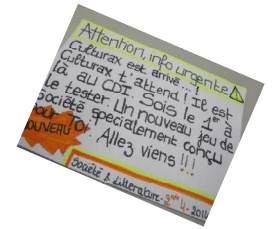 Attention, info urgente
Culturax est arrivé...!
Culturax t'attend! Il est
là au CDI. Sois le 1er à
le tester. Un nouveau jeu de
société spécialement conçu
pour toi!
NOUVEAU
Allez viens!!!
Société & Littérature. 3ème 4 - 2014